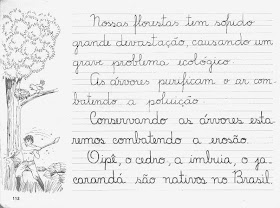 Nossas florestas tem sofrido
grande devastação, causando um
grave problema ecológico.
As árvores purificam o ar com-
batendo a poluição.
Conservando as árvores esta
remos combatendo a erosão.
Oipê, o cedro, a imbuia, o ja-
carandá são nativos no Brasil
118